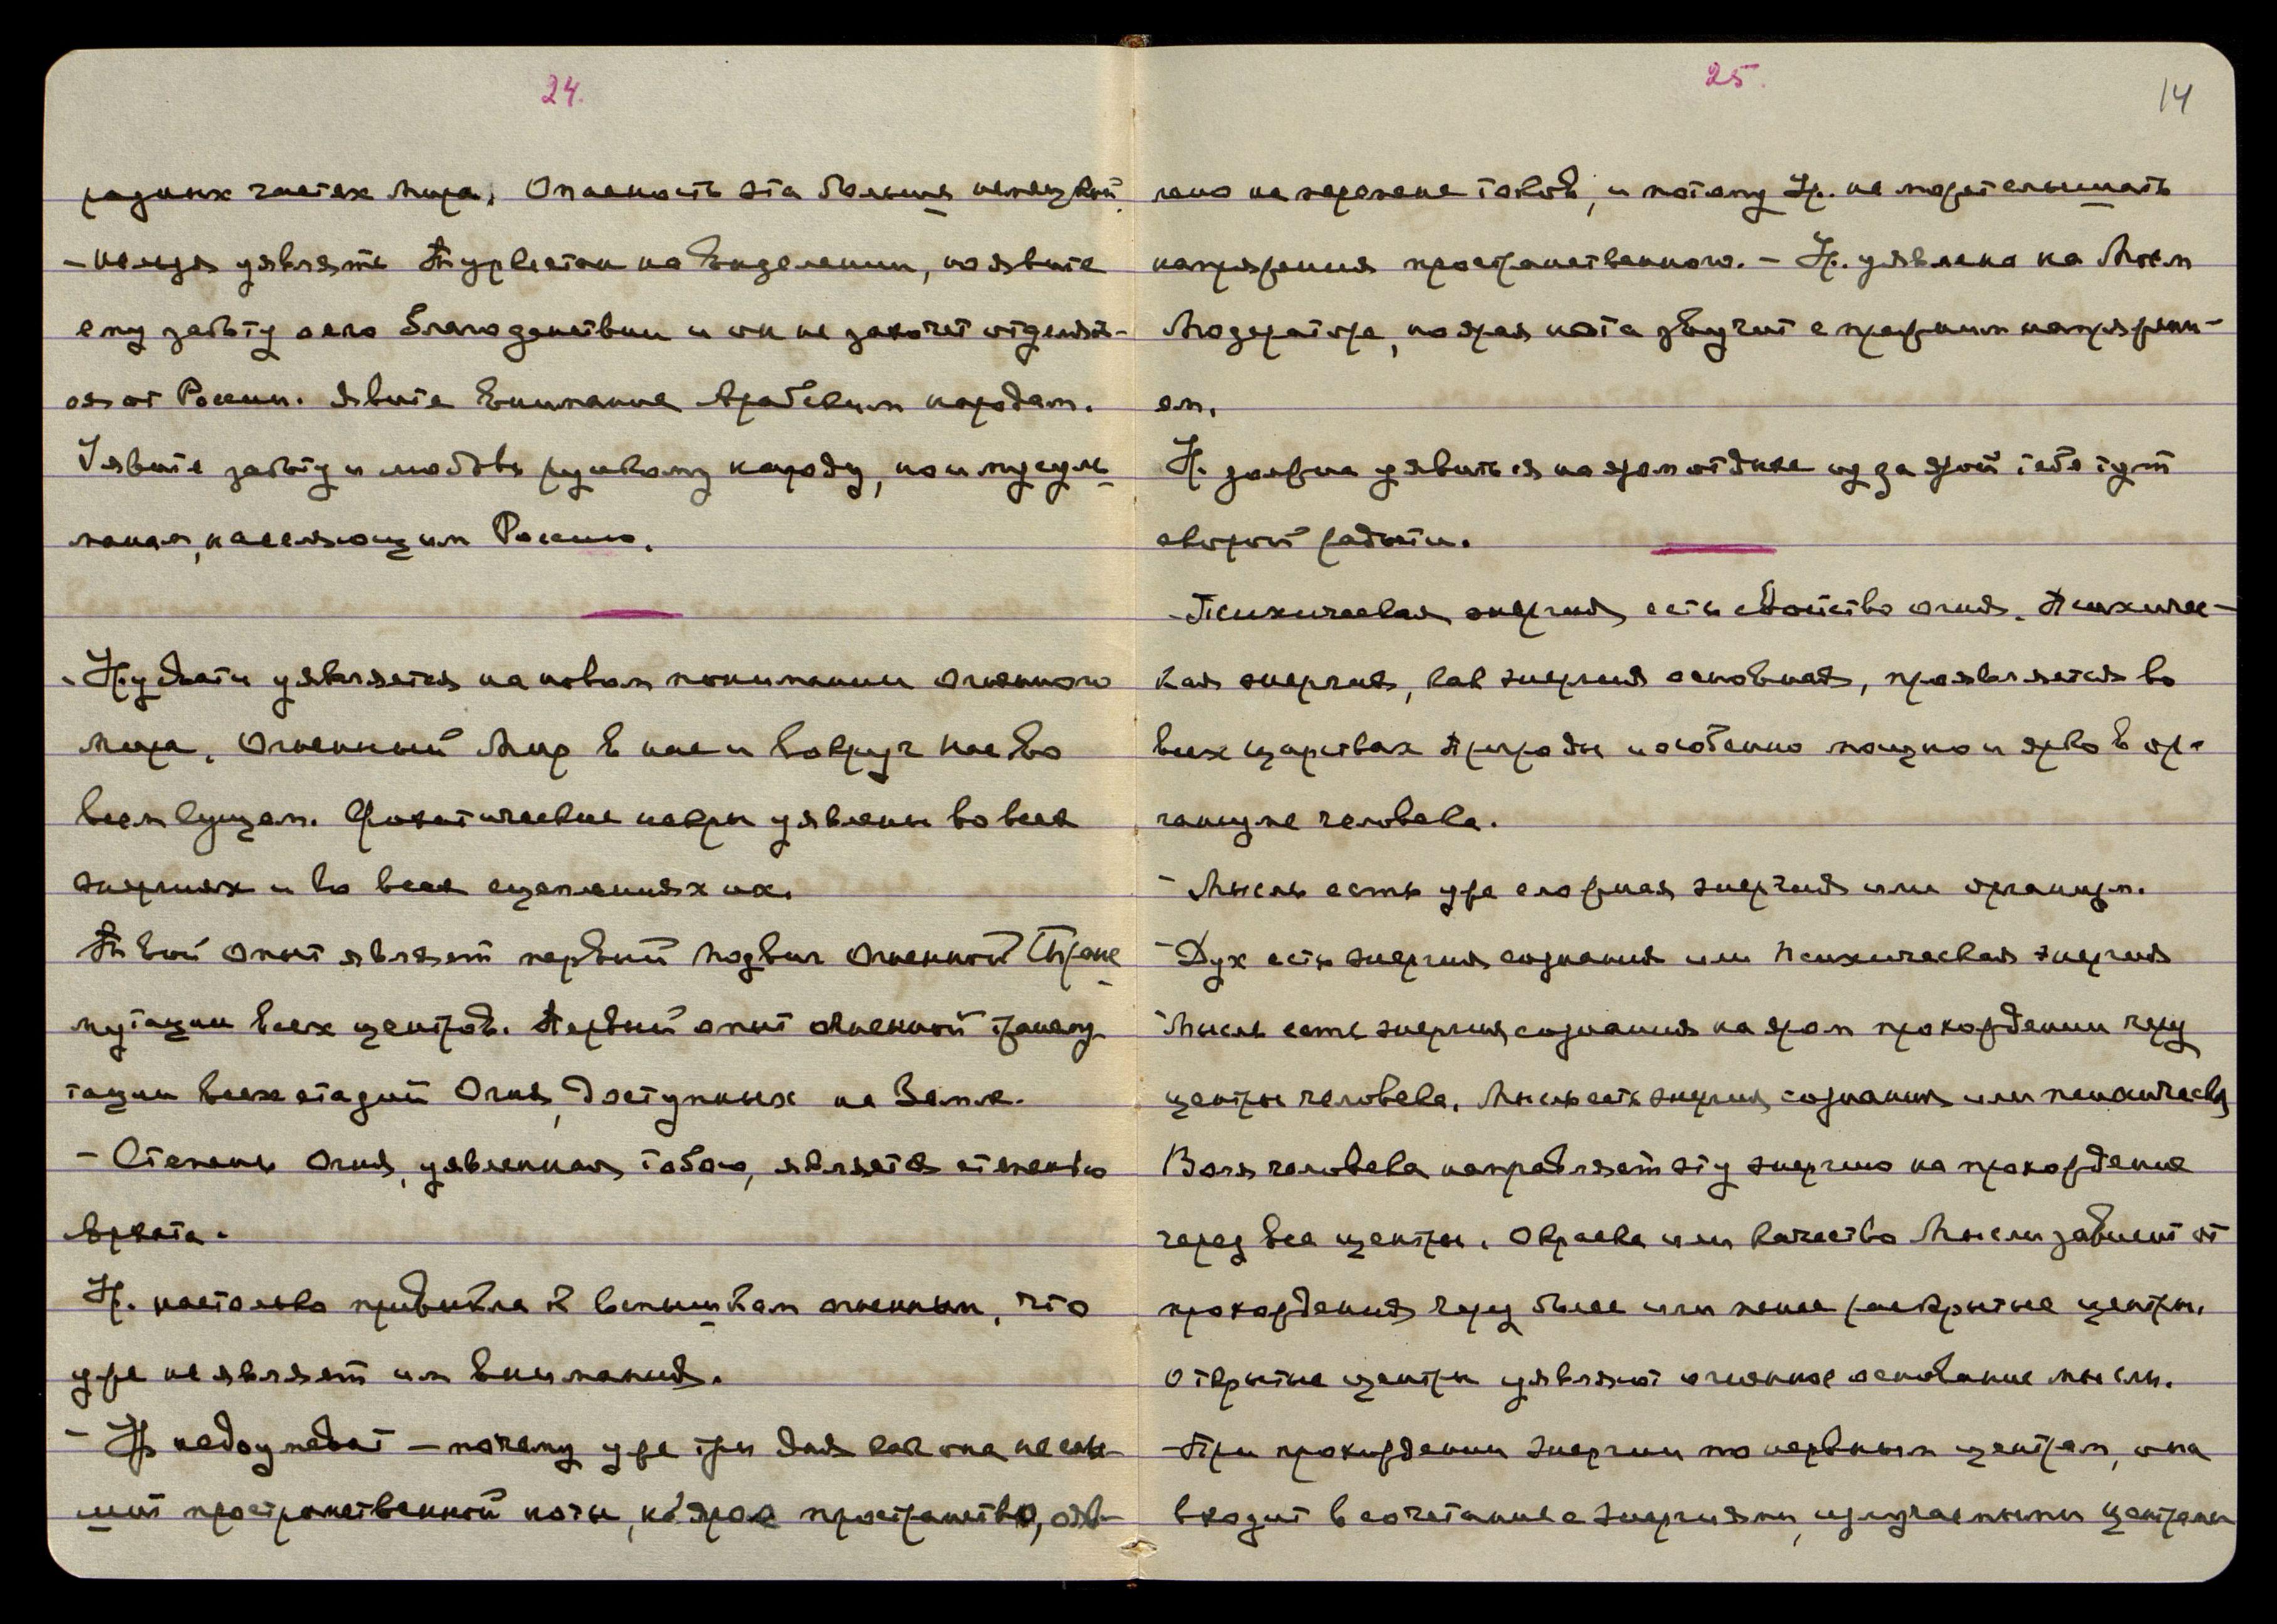 24.
разных частях мира. Опасность эта больше немецкой.
– нельзя уявлять Туркестан на выделении, но явите
ему заботу о его благоденствии и он не захочет отделять-
ся от России. Явите внимание Арабским народам.
Уявите заботу и любовь русскому народу, но и мусуль-
манам, населяющим Россию.
– Ур. удачно уявляется на новом понимании Огненного
Мира. Огненный Мир в нас и вокруг нас во
всем Сущем. Фохатические искры уявлены во всех
энергиях и во всех сцеплениях их.
Твой опыт являет первый подвиг Огненной Транс-
мутации всех центров. Первый опыт огненной трансму-
тации всех стадий Огня, доступных на Земле.
– Степень Огня, уявленная тобою, является степенью
Архата.
Ур. настолько привыкла к вспышкам огненным, что
уже не являет им внимания.
– Ур. недоумевает – почему уже три дня как она не слы-
шит пространственной ноты, но ярое пространство, явл-
25.
14
лено на перемене токов, и потому Ур. не может слышать
напряжения пространственного. – Ур. уявлена на Моем
Модераторе, но ярая нота звучит с прежним напряжени-
ем.
Ур. должна уявиться на яром отдыхе из за ярой тебе тут
скорой радости.
– Психическая энергия есть свойство огня. Психичес-
кая энергия, как энергия основная, проявляется во
всех царствах Природы и особенно мощно и ярко в ор-
ганизме человека.
– Мысль есть уже сложная энергия или организм.
– Дух есть энергия сознания или Психическая энергия
Мысль есть энергия сознания на яром прохождении через
центры человека. Мысль есть энергия сознания или психическая
Воля человека направляет эту энергию на прохождение
через все центры. Окраска или качество Мысли зависит от
прохождения через более или менее раскрытые центры.
Открытые центры уявляют огненное основание мысли.
– При прохождении энергии по нервным центрам, она
входит в сочетание с энергиями, излучаемыми центрами